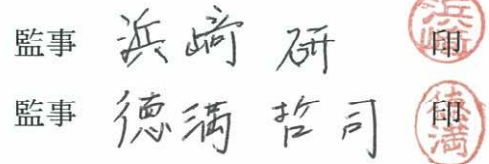 監事 浜﨑 研 印 浜﨑
監事 徳満 哲司 印 徳満